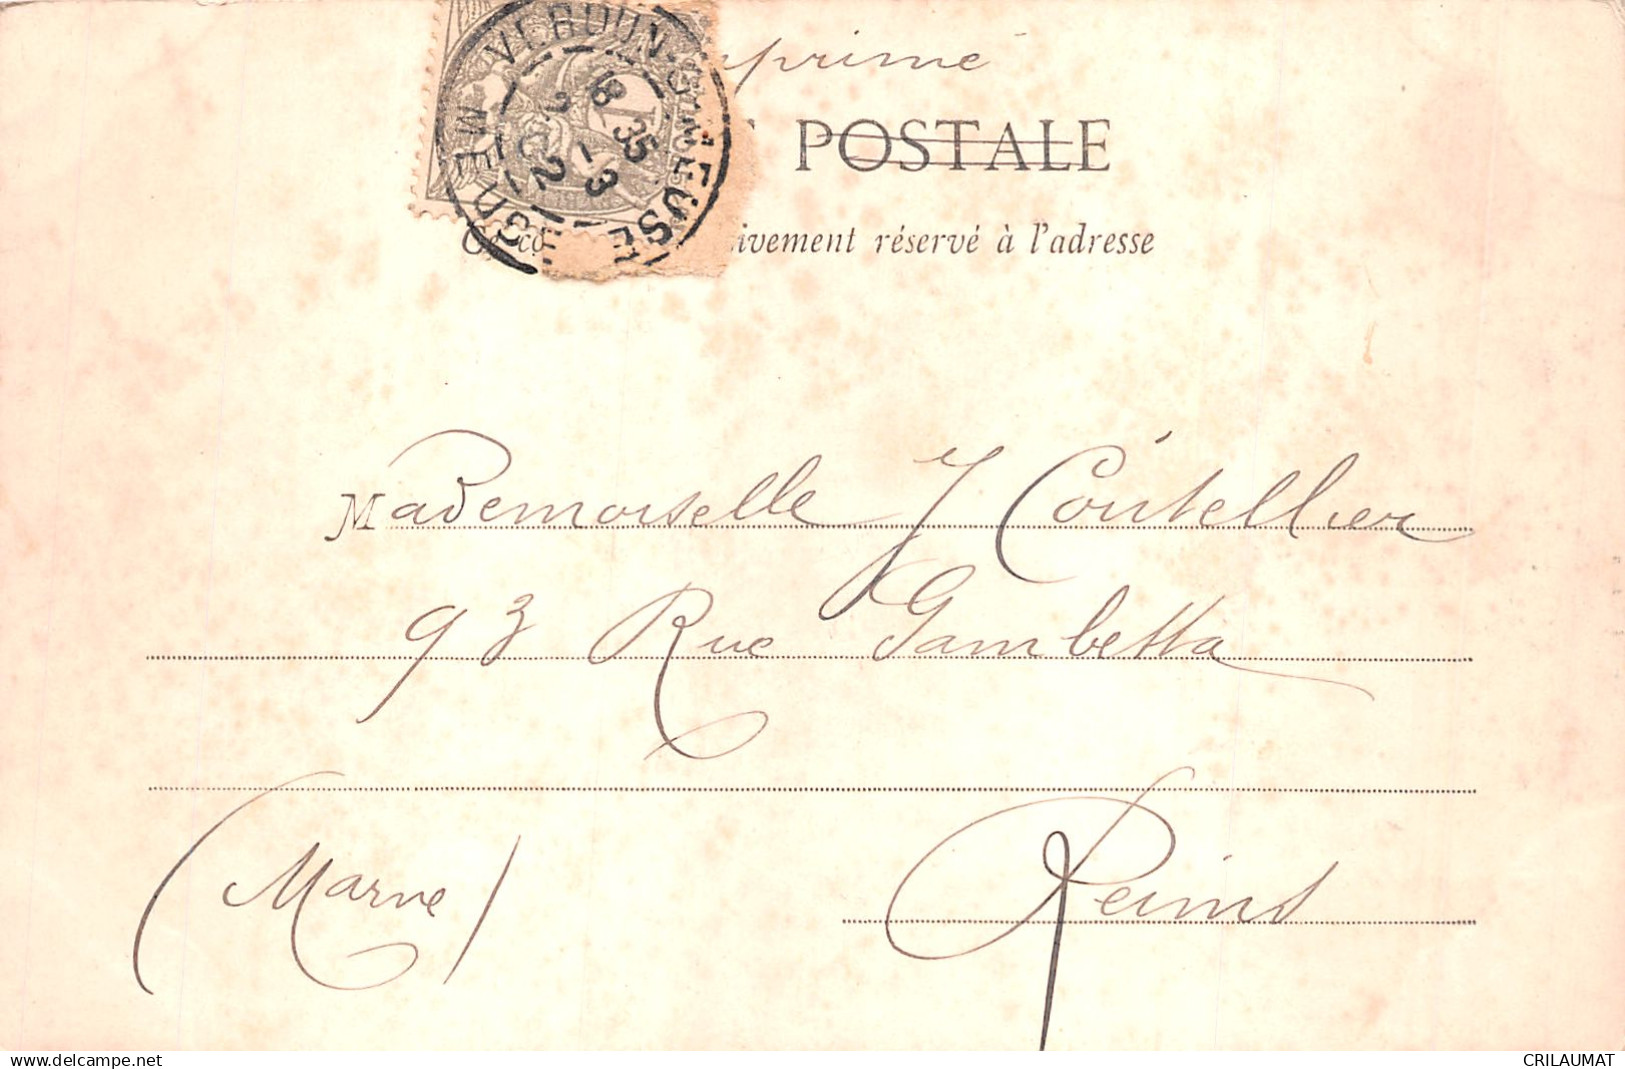 primé
POSTALE
VERDUN-S-MEUSE
MEUSE
18 35
1 - 3
02
ivement réservé à l'adresse
Mademoiselle J Coutellier
93 Rue Gambetta
(Marne) Reims
www.delcampe.net
CRILAUMAT